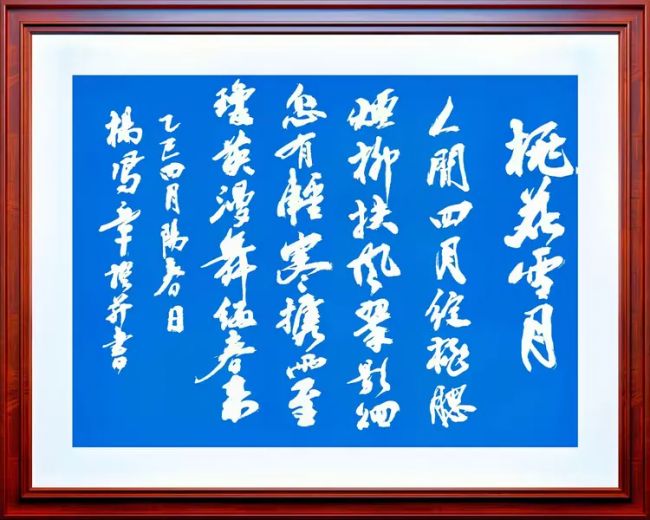 桃花雪月
人間四月綻桃腮
煙柳扶風翠影徊
忽有輕寒攜雨至
瓊英漫舞伍春来
乙巳四月陽春日
楊鳳章撰并書